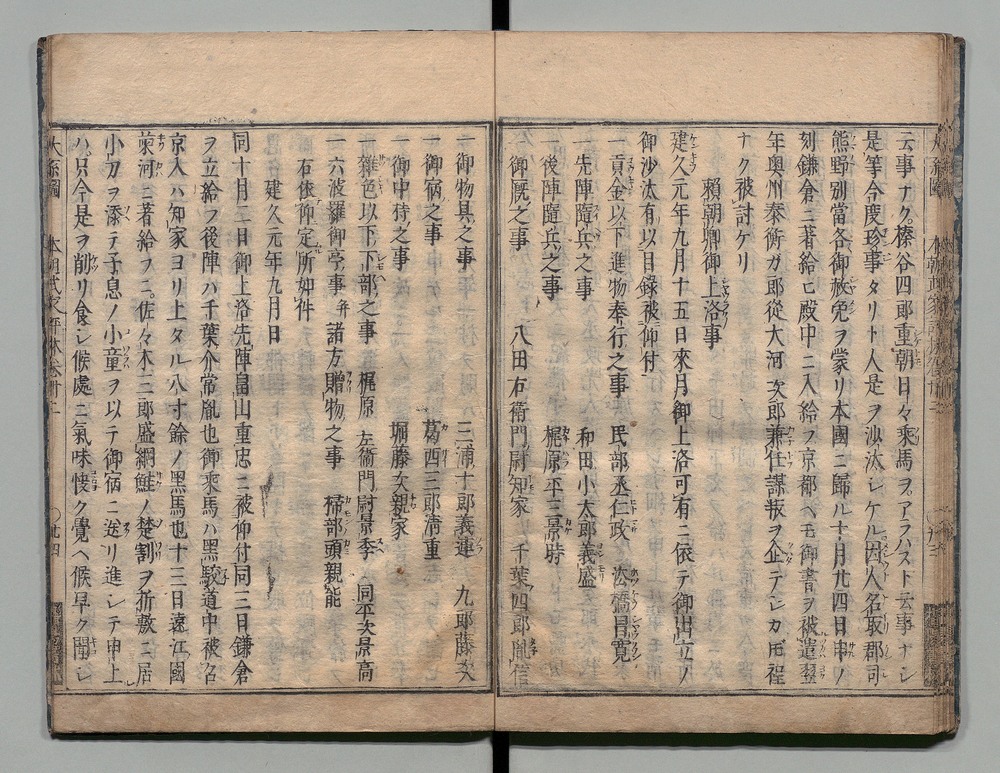 云事ナク。榛谷四郎重朝日々乘馬ヲ。アラハスト云事ナシ
是等今慶珍事タリト人是ヲ沙汰シケル。囚人名取郡司
熊野別當各御赦免ヲ蒙リ本國ニ歸ル十月廿四日申ノ
刻鎌倉ニ著給ヒ殿中ニ入給フ京都ヘモ御書ヲ被遣翌
年奥州泰衡ガ郎從大河次郎兼任謀叛ヲ企テシカ𪜈程
ナク被討ケリ
賴朝卿御上洛事
建久元年九月十五日來月御上洛可有ニ依テ御出立ノ
御沙汰有以目録被仰付
一貢金以下進物奉行之事 民部丞仁政 法橋昌寛
一先陣隨兵之事 和田小太郎義盛
後陣隨兵之事 梶原平三景時
御厩之事 八田右衛門尉知家 千葉四郎胤信
一御物具之事 三浦十郎義連 九郎藤次
一御宿之事 葛西三郎清重
御中持之事 堀藤次親家
一雜色以下下部之事 梶原左衛門尉景季 同平次景高
一六波羅御亭事并諸方贈物之事 掃部頭親能
右依仰定所如件
建久元年九月日
同十月二日御上洛先陣畠山重忠ニ被仰付同三日鎌倉
ヲ立給フ後陣ハ千葉介常胤也御乘馬ハ黑駮道中被召
京入ハ知家ヨリ上タル八寸餘ノ黑馬也十三日遠江國
菊河ニ著給フニ。佐々木三郎盛綱鮭ノ楚割ヲ折敷ニ居
小刀ヲ添テ子息ノ小童ヲ以テ御宿ニ送リ進シテ申上
ハ只今是ヲ削リ食シ候處ニ氣味快ク覺ヘ候早ク聞シ